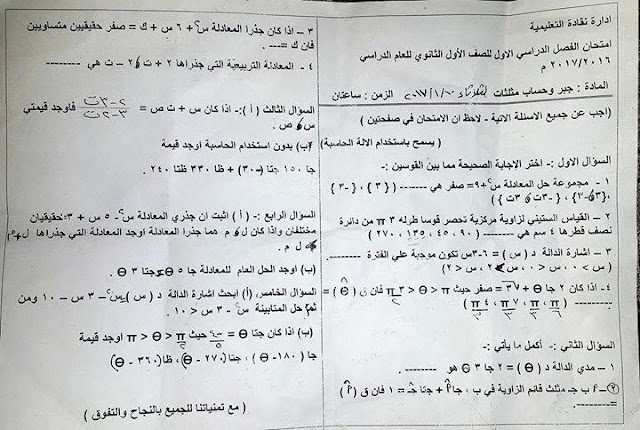 ادارة نقادة التعليمية
امتحان الفصل الدراسي الاول للصف الأول الثانوي للعام الدراسي
٢٠١٧/٢٠١٦ م
المادة : جبر وحساب مثلثات الزمن : ساعتان
(اجب عن جميع الاسئلة الاتية - لاحظ ان الامتحان في صفحتين )
( يسمح باستخدام الالة الحاسبة )
السؤال الاول :- اختر الاجابة الصحيحة مما بين القوسين:-
١ - مجموعة حل المعادلة س٢+٩= صفر هي ------- ( { ٣ } ، { -٣ }
،{٣،-٣} ، { -٣ت،٣ت } )
٢ - القياس الستيني لزاوية مركزية تحصر قوسا طوله ٣ π من دائرة
نصف قطرها ٤ سم هي ------- ( ٩٠ ، ٤٥ ، ١٣٥ ، ٢٧٠ )
٣ - اشارة الدالة د ( س ) = ٦-٣س تكون موجبة علي الفترة --------
( س > ٠ ، س < ٠ ، س > ٢ ، س < ٢ )
٤- اذا كان ٢ جا θ + √٣ = صفر حيث π < θ < ٣π/٢ فان ق ( θ ) =
--------- ( π/٦ ، π/٣ ، ٧π/٦ ، ٤π/٣ )
السؤال الثاني :- أكمل ما يأتي:-
١ - مدي الدالة د ( θ ) = ٢ جا ٣ θ هو --------
٢ - أ ب جـ مثلث قائم الزاوية في ب ، جا أ + جتا جـ = ١ فان ق ( أ )
=---------
٣ - اذا كان جذرا المعادلة س٢ + ٦ س + ك = صفر حقيقيين متساويين
فان ك =---.
٤ - المعادلة التربيعية التي جذراها ٢ + ت ، ٢ - ت هي --------
السؤال الثالث ( أ ):- اذا كان س + ت ص = ٢-٣ت/٣-٢ت فاوجد قيمتي
س ، ص .
(ب) بدون استخدام الحاسبة اوجد قيمة
جا ١٥٠ جتا (-٣٠) + ظا ٣٣٠ ظتا ٢٤٠ .
السؤال الرابع :- ( أ) اثبت ان جذري المعادلة س٢ - ٥ س + ٣=٠ حقيقيان
مختلفان واذا كان ل ، م هما جذرا المعادلة اوجد المعادلة التي جذراها ل+م
، ل م .
(ب) اوجد الحل العام للمعادلة جا ٥ θ = جتا ٣ θ
السؤال الخامس:( أ) ابحث اشارة الدالة د ( س ) = س٢ - ٣ س - ١٠ ومن
ثم حل المتباينة س٢ - ٣ س < ١٠ .
(ب) اذا كان جتا θ = -٤/٥ حيث π/٢ < θ < π اوجد قيمة
جا ( ١٨٠ - θ ) ، جتا (٢٧٠ - θ) ، ظا (٣٦٠ - θ)
( مع تمنياتنا للجميع بالنجاح والتفوق )